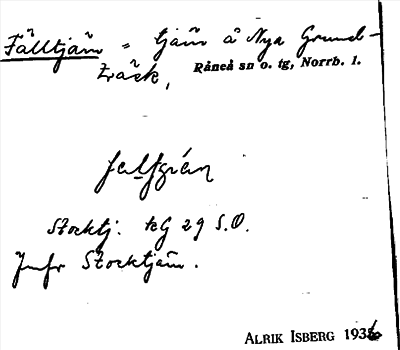 Fälltjärn = tjärn å Nya Grund-
träsk,
Råneå sn o. tg, Norrb. l.
Stocktj. kG 29 S.O.
Jmfr Stocktjärn.
ALRIK ISBERG 1936